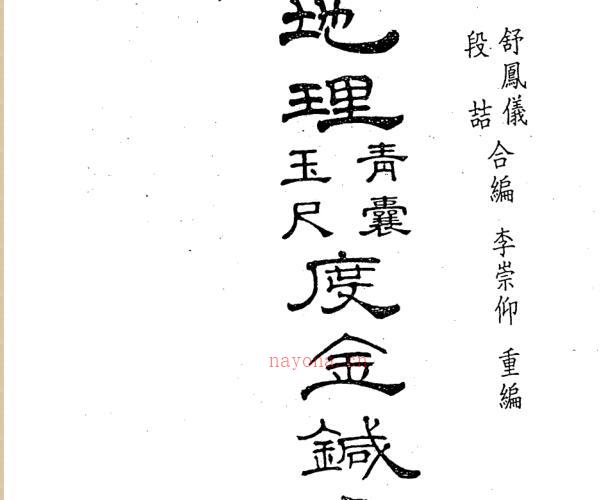 舒鳳儀
段喆
合編 李崇仰 重編
地理
青囊
玉尺
度金鍼
nayona.cn